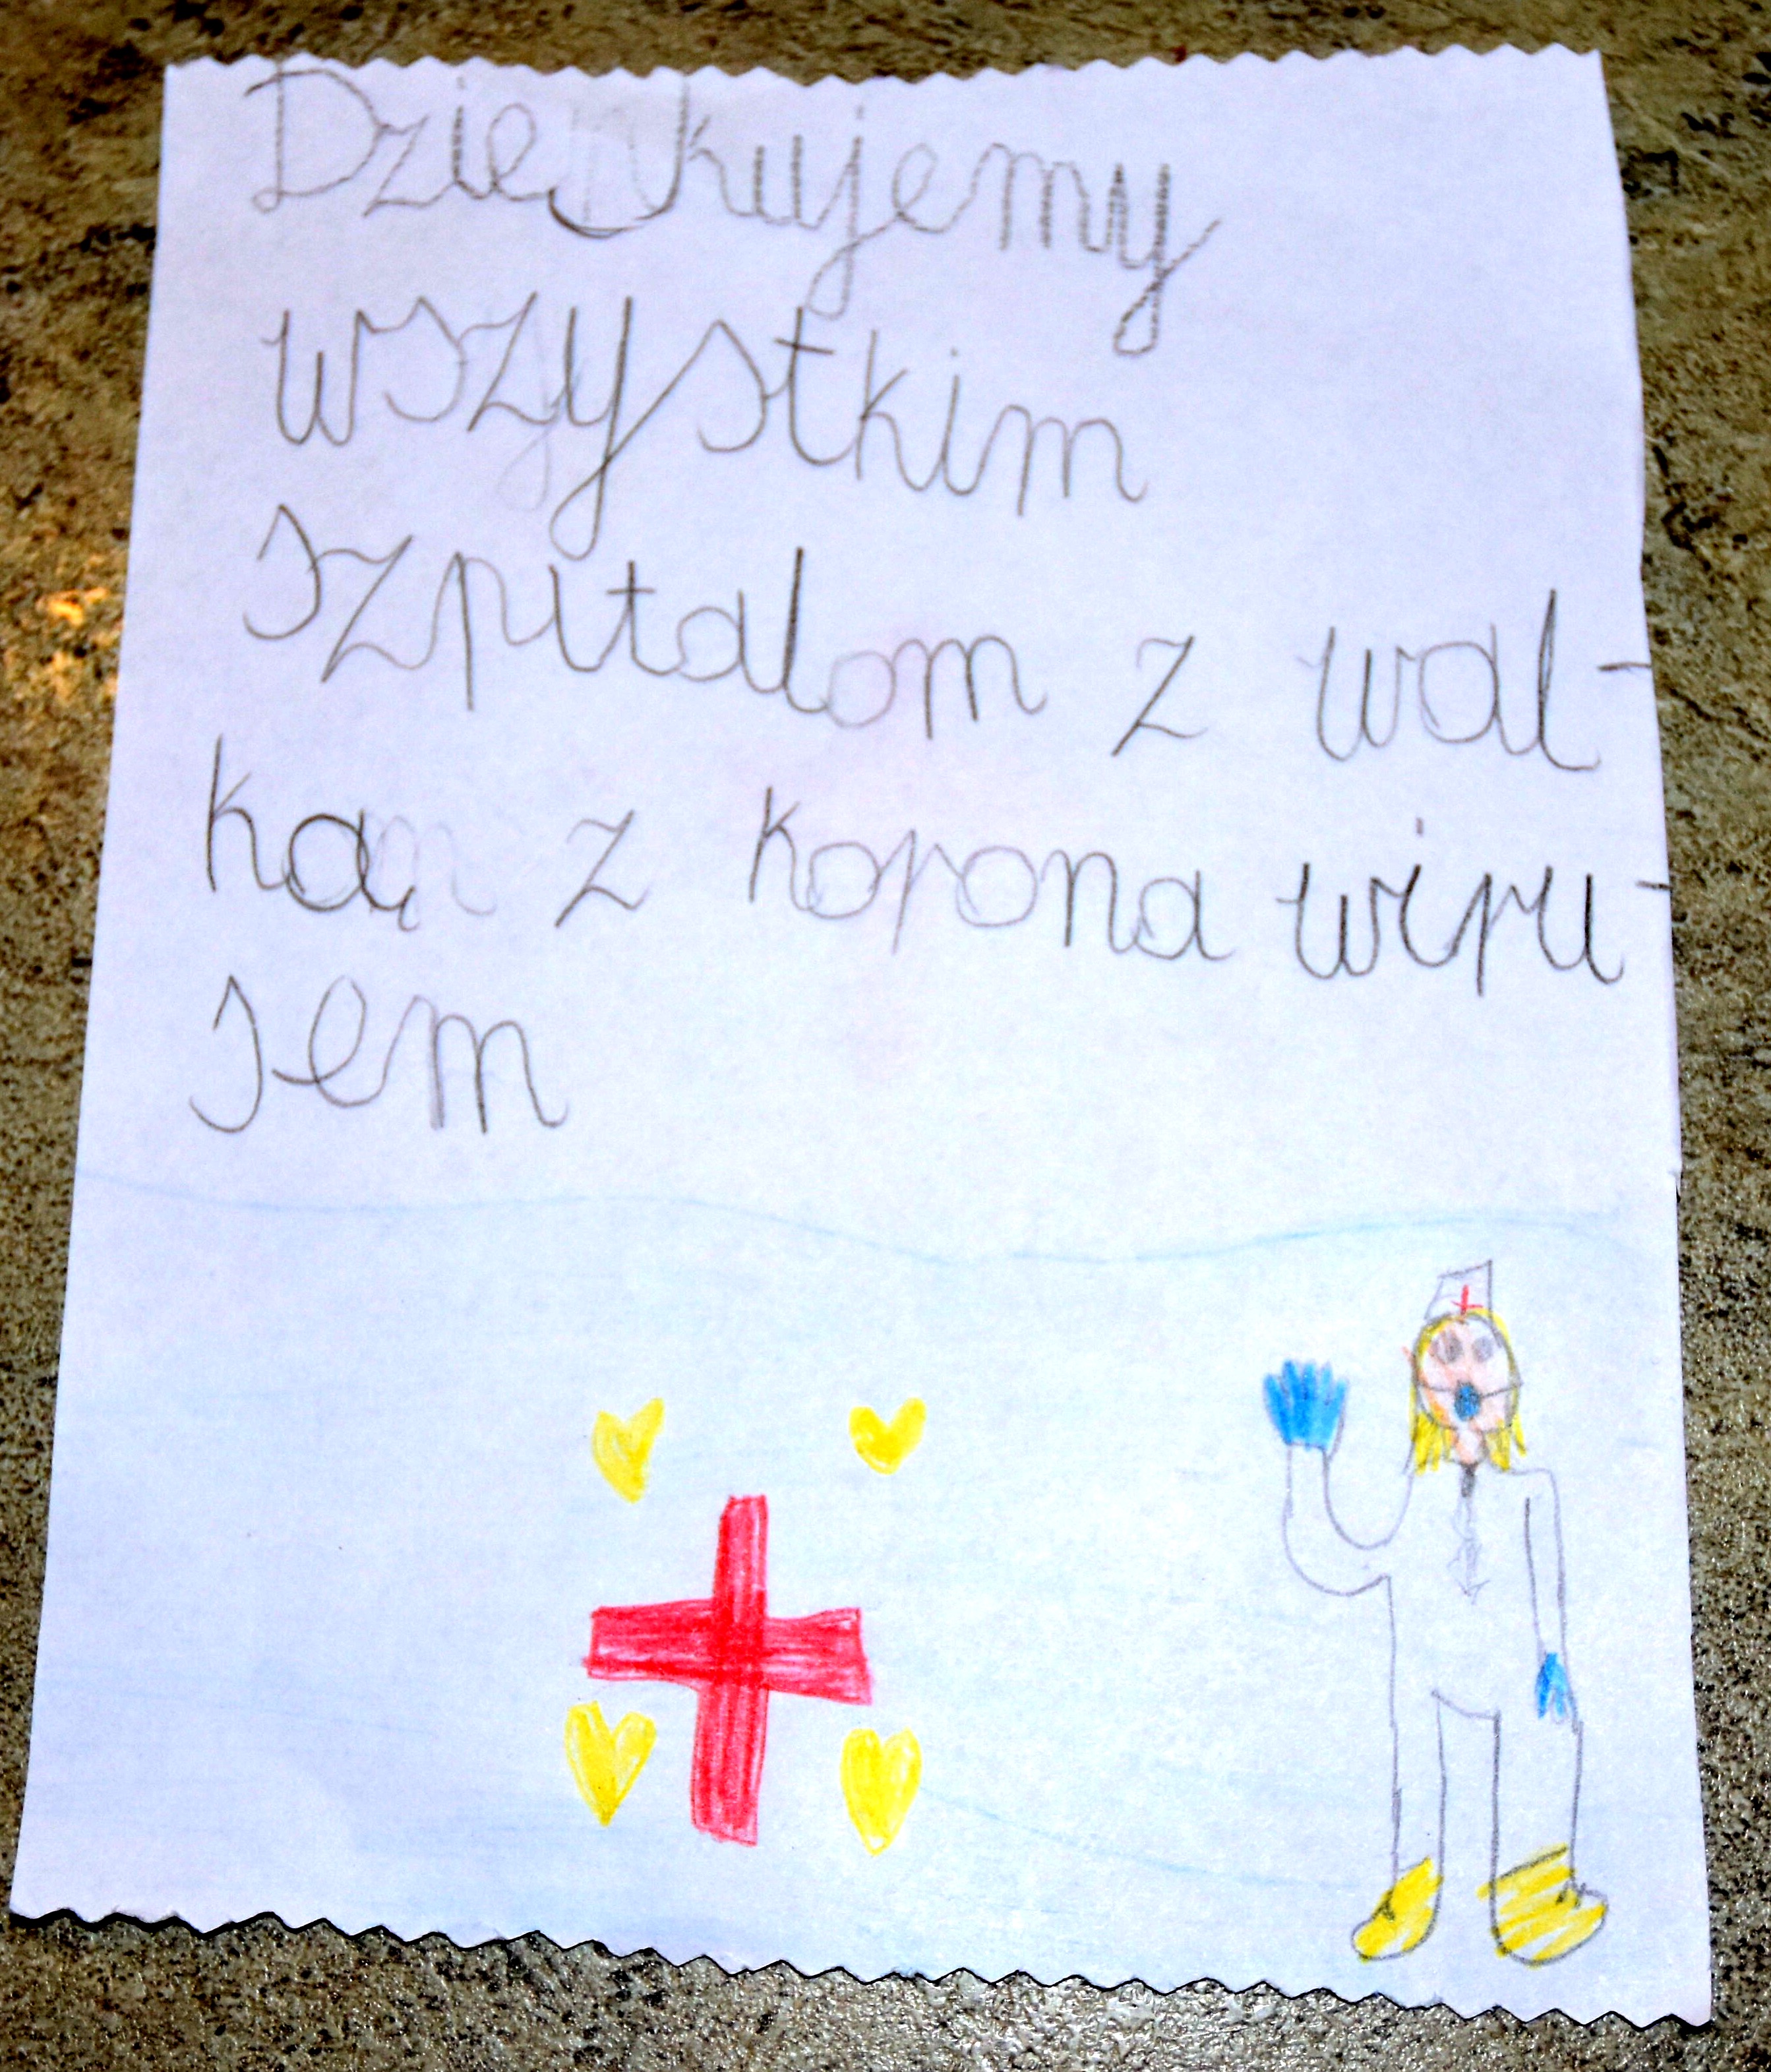 Dziękujemy
wszystkim
szpitalom z wal-
ką z korona wiru-
sem